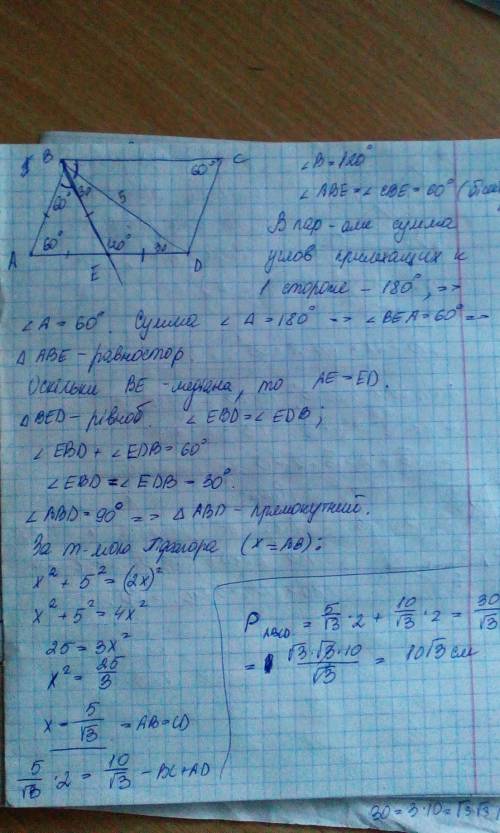 B
C
A
E
D
60°
60°
60°
30
5
30
∠B=120°
∠ABE=∠CBE=60°
В пар-оме сумма
углов прилежащих к
1 стороне – 180°, =>
∠A=60°. Сумма ∠Δ=180° => ∠BEA=60° =>
Δ ABE – равностор
Оскільки BE – медиана, то AE=ED.
Δ BED – рівноб. ∠EBD=∠EDB;
∠EBD+∠EDB=60°
∠EBD=∠EDB=30°.
∠ABD=90° => Δ ABD – прямокутний.
За т-мою Піфагора (x=AB):
x²+5²=(2x)²
x²+5²=4x²
25=3x²
x²=25/3
x=5/√3=AB=CD
5/√3·2=10/√3–BC+AD
P =5/√3·2+10/√3·2=30/√3
= √3·√3·10/√3=10√3 см
30=3·10=√3√3